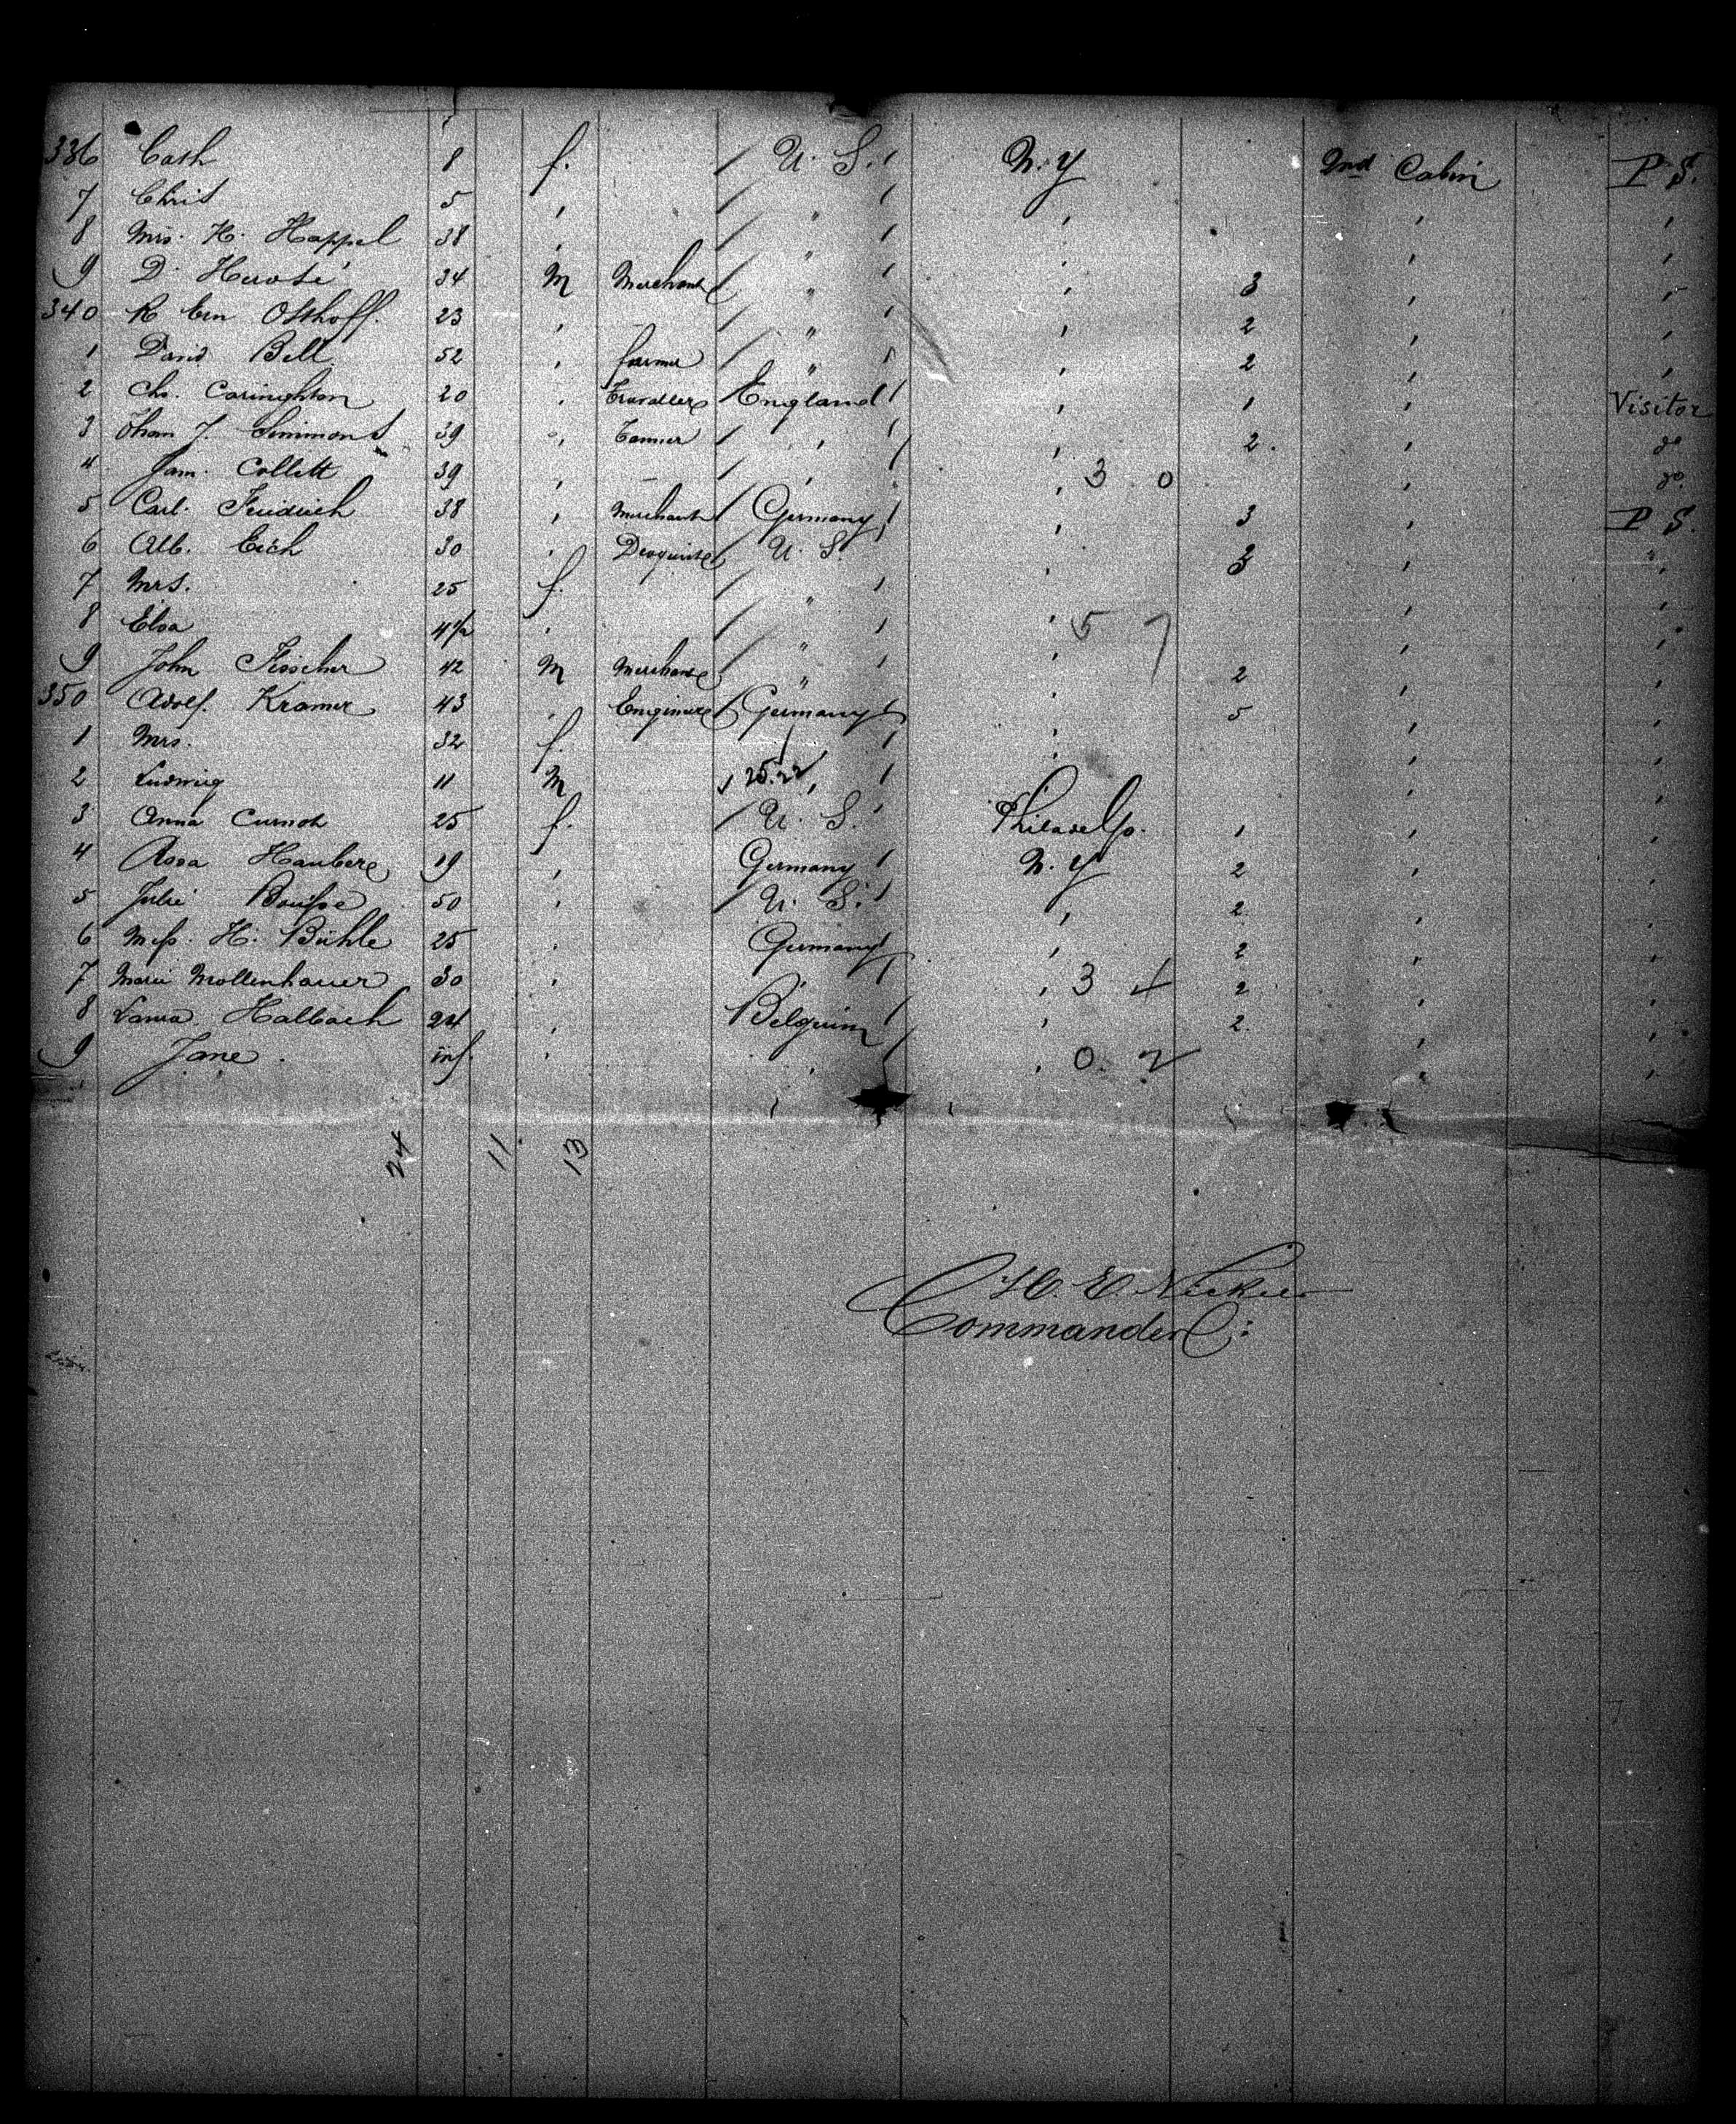 336 Cath 8 f. / U. S. / N. Y 2nd Cabin P. S.
7 Chris 5 , / " / , , ,
8 Mrs. H. Happel 38 , / " / , , ,
9 D. 34 M Merchant / " / , 3 , ,
340 R Osthoff. 23 , / " / , 2 , ,
1 David Bell 52 , farmer / " / , 2 , ,
2 Chs. Caringhton 20 , England / , 1 , Visitor
3 Thom J. Simmons 39 , Tanner / , / , 2. , do
4 Jam. Collett 39 , — / , / , 3 0 , do.
5 Carl. Freidrich 38 , Merchant / Germany / , 3 , P S.
6 Alb. Eich 30 , / U. S. , 3 , "
7 Mrs. 25 f. / " / , , ,
8 Elsa 4 1/2 , / " / , 5 7 , ,
9 John Fisscher 42 M Merchant / " / , 2 , ,
350 Adolf. Kramer 43 , / Germany / , 5 , ,
1 Mrs. 32 f. / / , , ,
2 Ludwig 11 M / 25.22 , / , , ,
3 Anna Curnoh 25 f. / U. S. / Philadelp. 1 , ,
4 Rosa 19 , Germany / N. Y 2 , ,
5 Julie 50 , / U. S. / , 2 , ,
6 Miss. H. Bühle 25 , Germany / , 2 , ,
7 Marie Mollenhauer 30 , , / , 3 4 2 , ,
8 Halbach 24 , Belguim / , 2. , ,
9 Jane. inf. , , / , 0. 2 , ,
24 11 13
H. E. Nickels
Commander: